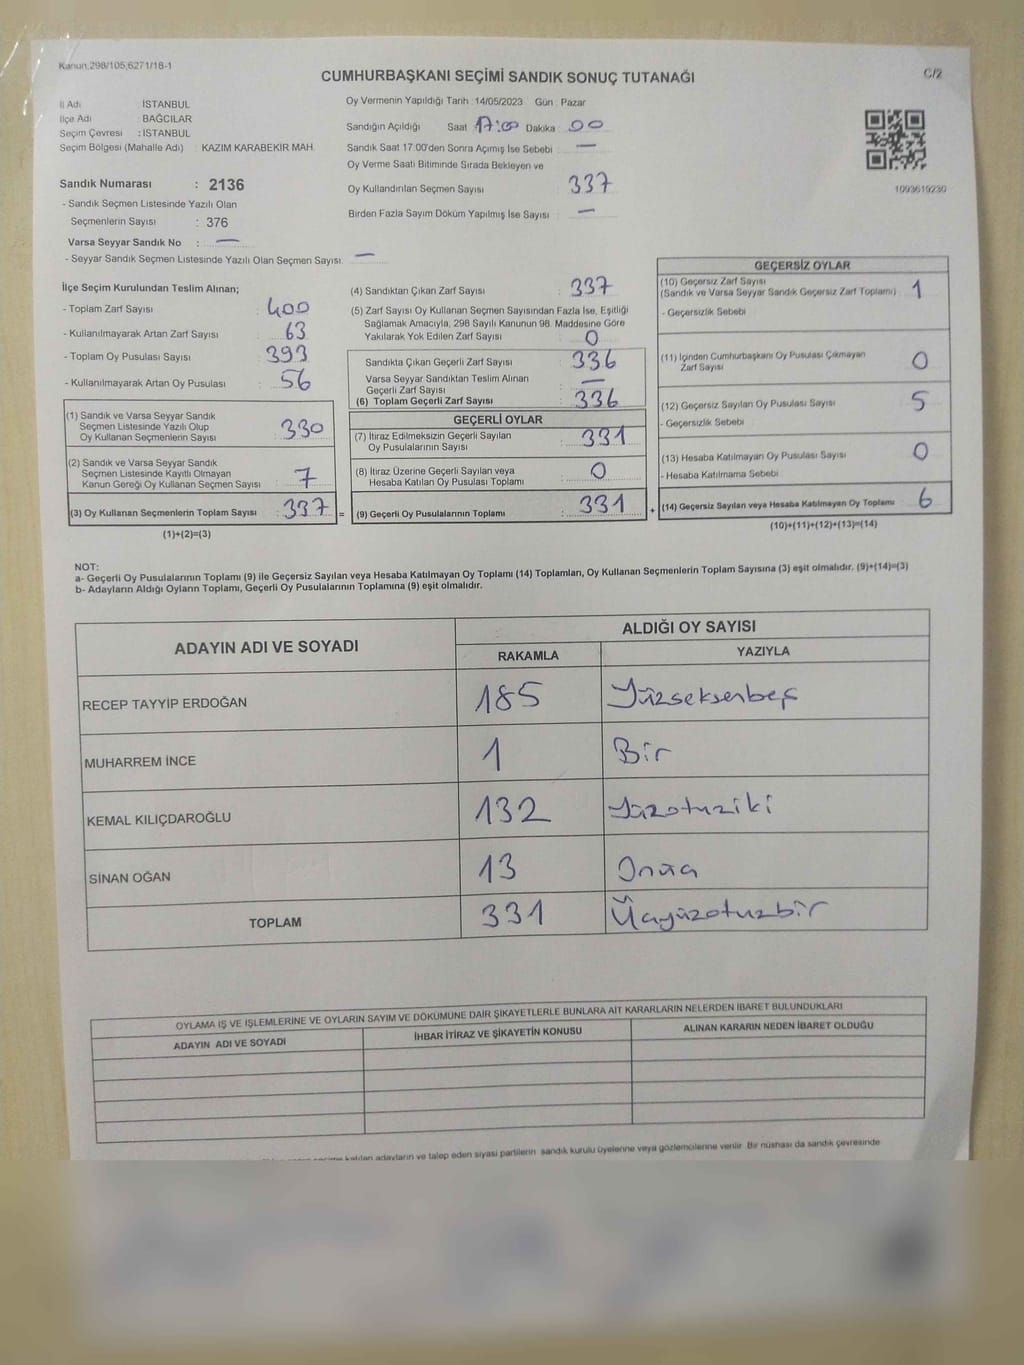 Kanun,298/105,6271/18-1
CUMHURBAŞKANI SEÇİMİ SANDIK SONUÇ TUTANAĞI
C/2
İl Adı İSTANBUL
İlçe Adı BAĞCILAR
Seçim Çevresi : İSTANBUL
Seçim Bölgesi (Mahalle Adı) : KAZIM KARABEKİR MAH.
Sandık Numarası : 2136
- Sandık Seçmen Listesinde Yazılı Olan
Seçmenlerin Sayısı : 376
Varsa Seyyar Sandık No : —
- Seyyar Sandık Seçmen Listesinde Yazılı Olan Seçmen Sayısı. —
Oy Vermenin Yapıldığı Tarih : 14/05/2023 Gün : Pazar
Sandığın Açıldığı Saat 17:00 Dakika 00
Sandık Saat 17:00'den Sonra Açımış İse Sebebi —
Oy Verme Saati Bitiminde Sırada Bekleyen ve
Oy Kullandırılan Seçmen Sayısı 337
Birden Fazla Sayım Döküm Yapılmış İse Sayısı —
1093619230
İlçe Seçim Kurulundan Teslim Alınan;
- Toplam Zarf Sayısı : 400
- Kullanılmayarak Artan Zarf Sayısı : 63
- Toplam Oy Pusulası Sayısı : 393
- Kullanılmayarak Artan Oy Pusulası : 56
(1) Sandık ve Varsa Seyyar Sandık
Seçmen Listesinde Yazılı Olup
Oy Kullanan Seçmenlerin Sayısı : 330
(2) Sandık ve Varsa Seyyar Sandık
Seçmen Listesinde Kayıtlı Olmayan
Kanun Gereği Oy Kullanan Seçmen Sayısı : 7
(3) Oy Kullanan Seçmenlerin Toplam Sayısı : 337 =
(1)+(2)=(3)
(4) Sandıktan Çıkan Zarf Sayısı : 337
(5) Zarf Sayısı Oy Kullanan Seçmen Sayısından Fazla İse, Eşitliği
Sağlamak Amacıyla, 298 Sayılı Kanunun 98. Maddesine Göre
Yakılarak Yok Edilen Zarf Sayısı : 0
Sandıkta Çıkan Geçerli Zarf Sayısı : 336
Varsa Seyyar Sandıktan Teslim Alınan
Geçerli Zarf Sayısı : —
(6) Toplam Geçerli Zarf Sayısı : 336
GEÇERLİ OYLAR
(7) İtiraz Edilmeksizin Geçerli Sayılan
Oy Pusulalarının Sayısı : 331
(8) İtiraz Üzerine Geçerli Sayılan veya
Hesaba Katılan Oy Pusulası Toplamı : 0
(9) Geçerli Oy Pusulalarının Toplamı : 331 +
GEÇERSİZ OYLAR
(10) Geçersiz Zarf Sayısı
(Sandık ve Varsa Seyyar Sandık Geçersiz Zarf Toplamı) 1
- Geçersizlik Sebebi
(11) İçinden Cumhurbaşkanı Oy Pusulası Çıkmayan
Zarf Sayısı 0
(12) Geçersiz Sayılan Oy Pusulası Sayısı 5
- Geçersizlik Sebebi
(13) Hesaba Katılmayan Oy Pusulası Sayısı 0
- Hesaba Katılmama Sebebi
(14) Geçersiz Sayılan veya Hesaba Katılmayan Oy Toplamı 6
(10)+(11)+(12)+(13)=(14)
NOT:
a- Geçerli Oy Pusulalarının Toplamı (9) ile Geçersiz Sayılan veya Hesaba Katılmayan Oy Toplamı (14) Toplamları, Oy Kullanan Seçmenlerin Toplam Sayısına (3) eşit olmalıdır. (9)+(14)=(3)
b- Adayların Aldığı Oyların Toplamı, Geçerli Oy Pusulalarının Toplamına (9) eşit olmalıdır.
ADAYIN ADI VE SOYADI
ALDIĞI OY SAYISI
RAKAMLA YAZIYLA
RECEP TAYYİP ERDOĞAN 185 Yüzseksenbeş
MUHARREM İNCE 1 Bir
KEMAL KILIÇDAROĞLU 132 Yüzotuziki
SİNAN OĞAN 13 Onüç
TOPLAM 331 Üçyüzotuzbir
OYLAMA İŞ VE İŞLEMLERİNE VE OYLARIN SAYIM VE DÖKÜMÜNE DAİR ŞİKAYETLERLE BUNLARA AİT KARARLARIN NELERDEN İBARET BULUNDUKLARI
ADAYIN ADI VE SOYADI İHBAR İTİRAZ VE ŞİKAYETİN KONUSU ALINAN KARARIN NEDEN İBARET OLDUĞU
katılan adayların ve talep eden siyasi partilerin sandık kurulu üyelerine veya gözlemcilerine verilir. Bir nüshası da sandık çevresinde